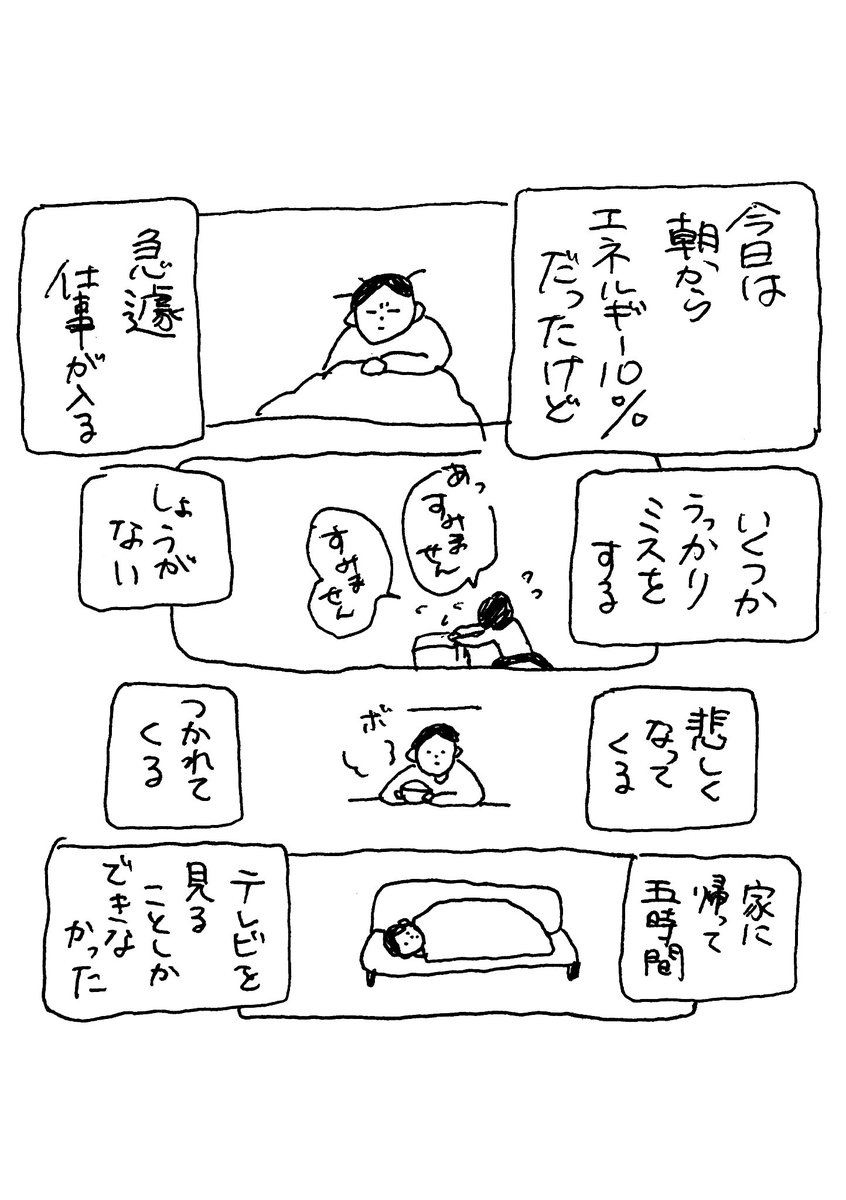 今日は
朝から
エネルギー10%
だったけど
急遽
仕事が入る
いくつか
うっかり
ミスを
する
あっ
すみま
せん
すみま
せん
しょうが
ない
悲しく
なって
くる
ボー
つかれて
くる
家に
帰って
五時間
テレビを
見る
ことしか
できな
かった